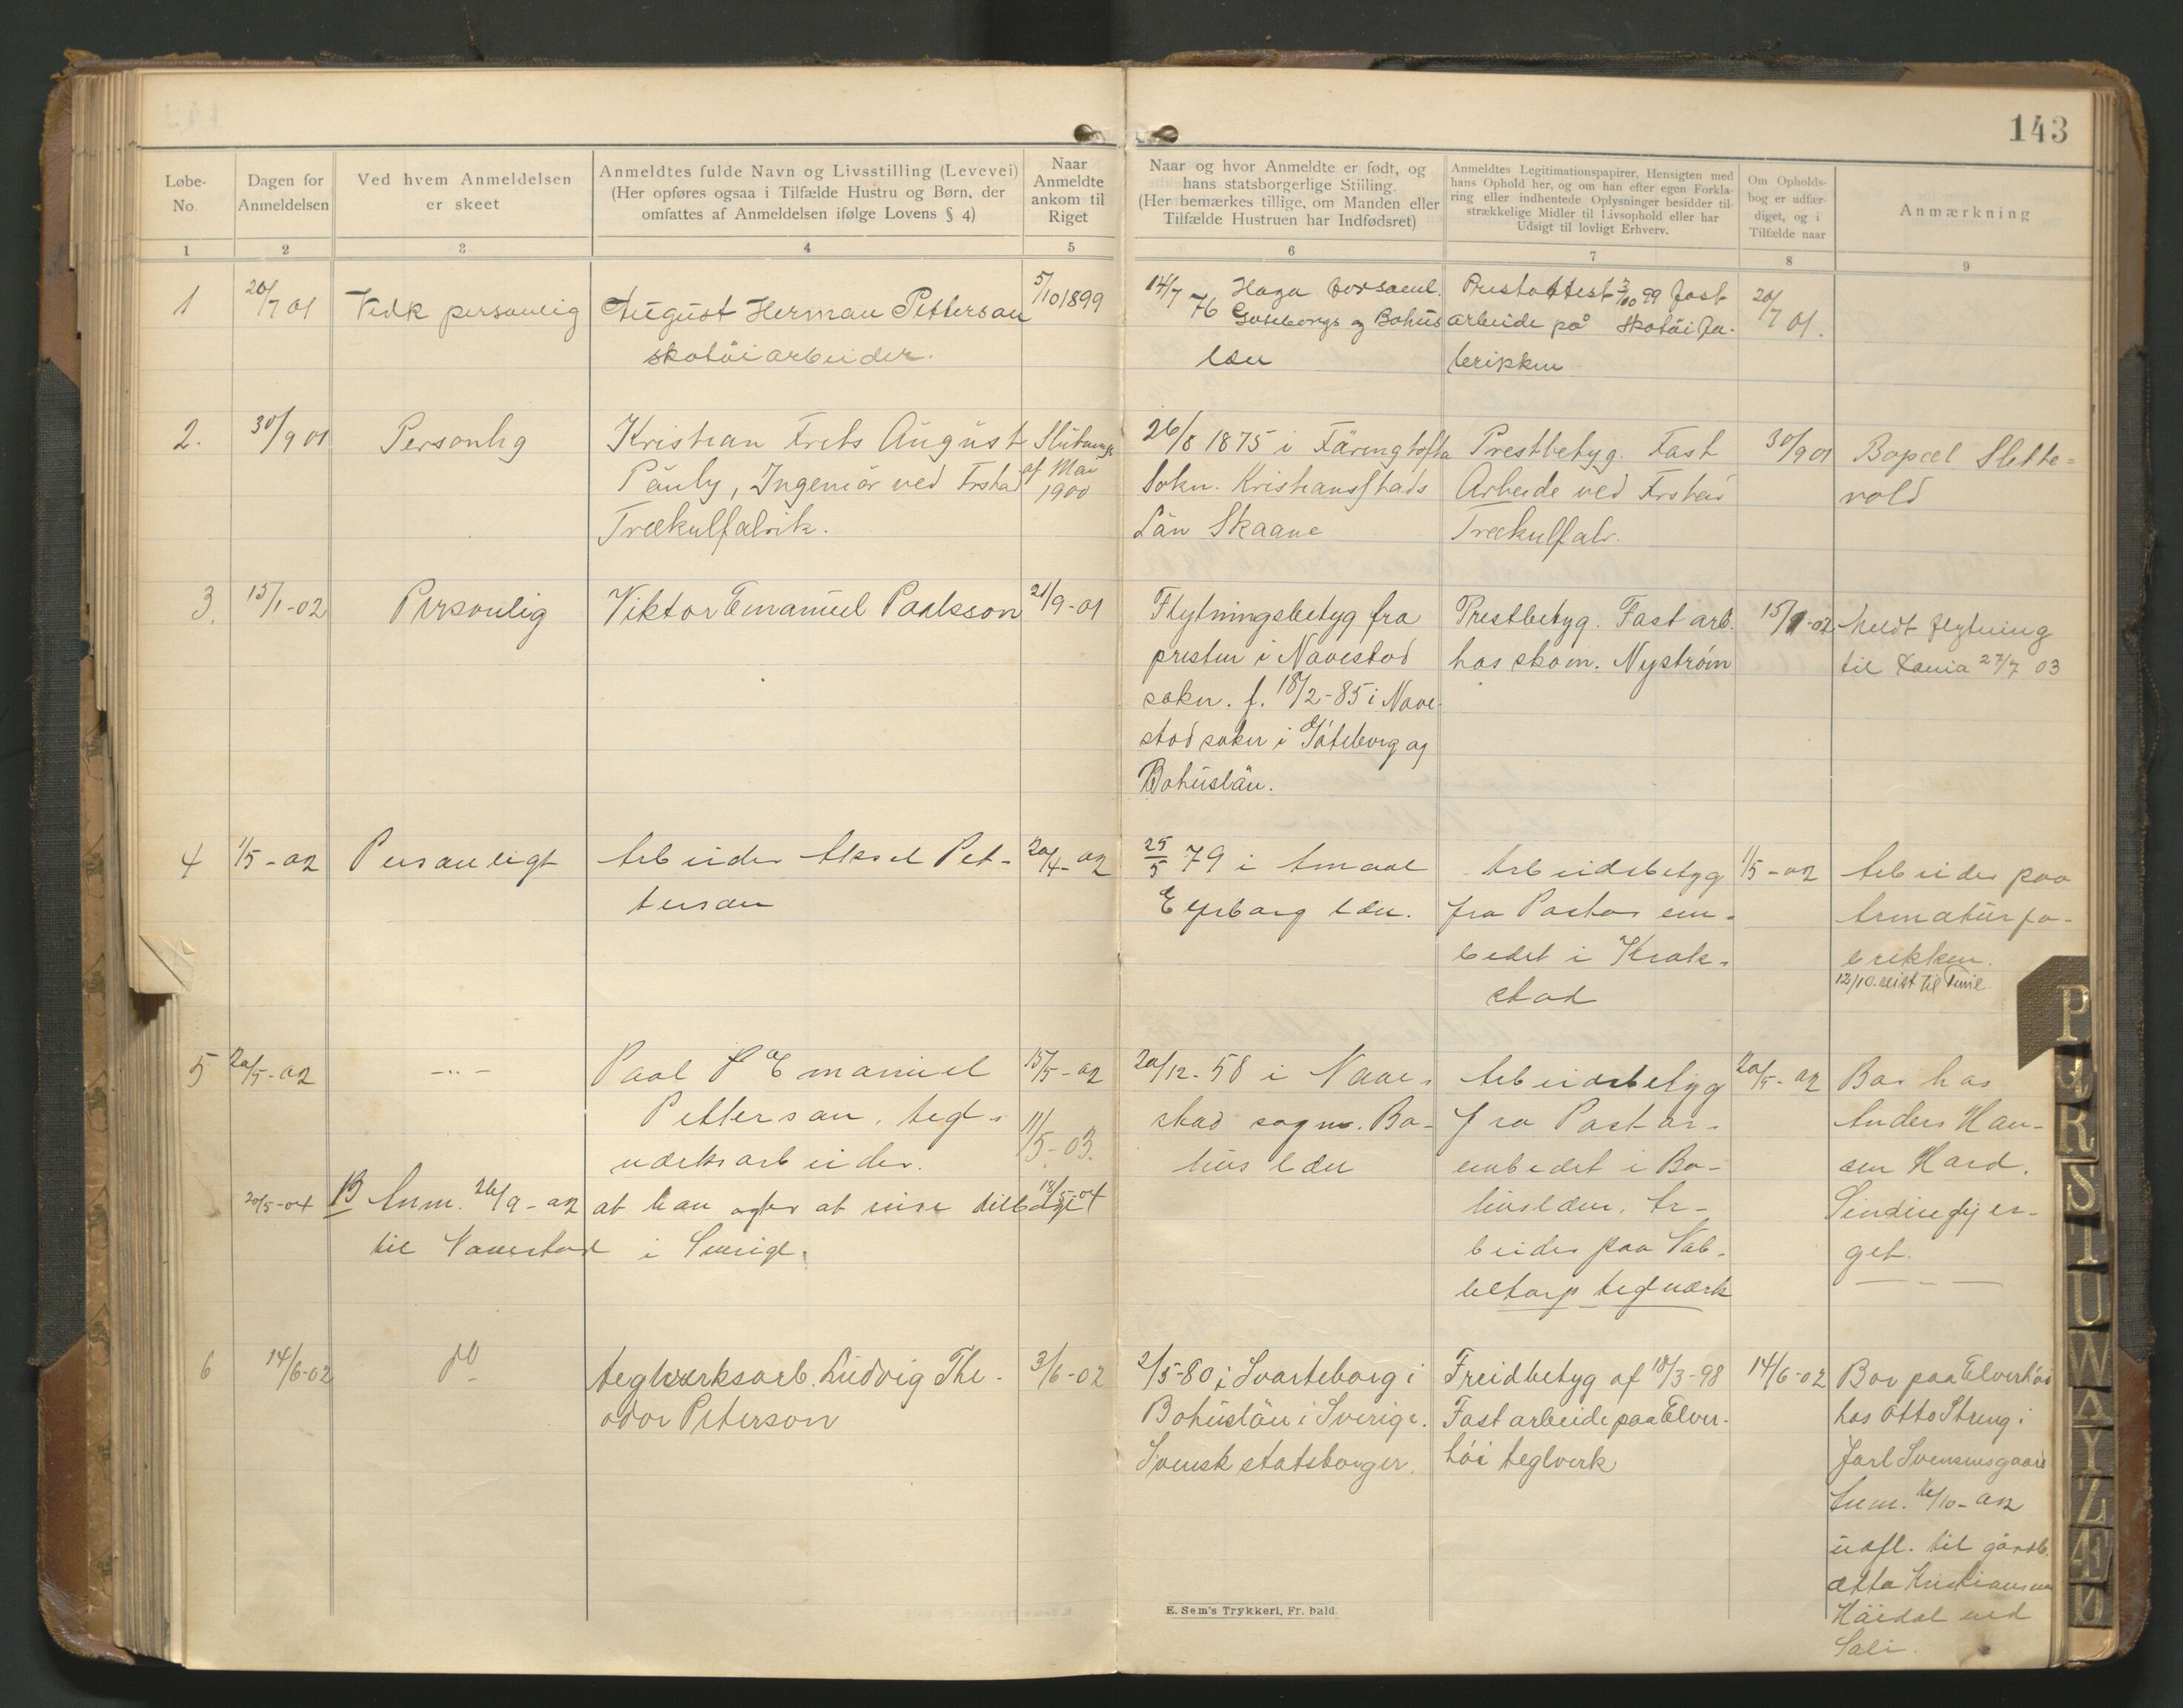 143
Løbe-
No.
Dagen for
Anmeldelsen
Ved hvem Anmeldelsen
er skeet
Anmeldtes fulde Navn og Livsstilling (Levevei)
(Her opføres ogsaa i Tilfælde Hustru og Børn, der
omfattes af Anmeldelsen ifølge Lovens § 4)
Naar
Anmeldte
ankom til
Riget
Naar og hvor Anmeldte er født, og
hans statsborgerlige Stilling.
(Her bemærkes tillige, om Manden eller
Tilfælde Hustruen har Indfødsret)
Anmeldtes Legitimationspapirer, Hensigten med
hans Ophold her, og om han efter egen Forkla-
ring eller indhentede Oplysninger besidder til-
strækkelige Midler til Livsophold eller har
Udsigt til lovligt Erhverv.
Om Opholds-
bog er udfær-
diget, og i
Tilfælde naar
Anmærkning
1 2 3 4 5 6 7 8 9
1
20/7 01
Vedk personlig
August Herman Petterson
skotöiarbeider.
5/10 1899
14/7 76 Haga
Goteborgs og Bohus
læn
Prestattest 3/10 99 fast
arbeide på skotöifa-
brikken
20/7 01.
2.
30/9 01
Personlig
Kristian Frits August
Pauly, Ingeniör ved
Trækulfabrik.
Slutningen
af Mai
1900
26/8 1875 i Färingtofta
Sokn. Kristiansstads
Län Skaane
Prestbetyg. Fast
Arbeide ved
Trækulfabr.
30/9 01
Bopæl Slette-
vold
3.
15/1-02
Personlig
Viktor Emanuel Paalsson
21/9-01
Flytningsbetyg fra
presten i Navestad
sokn. f. 18/2-85 i Nave-
stad sokn i Göteborg og
Bohuslän.
Prestbetyg. Fast arb.
hos skom. Nyström
15/1-02
meldt flytning
til Xania 27/7 03
4
1/5-02
Personligt
Arbeider Aksel Pet-
terson
20/4-02
25/5 79 i Amaal
Elfsborg læn.
Arbeidsbetyg
fra Pastor em-
bedet i Krak-
stad
1/5-02
Arbeider paa
Armaturfa-
brikken.
12/10. reist til
5
20/5-02
-"-
Paal P Emanuel
Petterson, tegl-
værksarbeider.
15/5-02
11/5-03.
20/12-58 i Nave-
stad sogn. Bo-
hus læn
Arbeidsbetyg
fra Pastor-
embedet i Bo-
huslæn. Ar-
beider paa Kab-
beltorp teglværk
20/5-02
Bor hos
Anders Han-
sen Hard.
fjer-
get.
20/5-04
Anm. 26/9-02 at han agter at reise tilbage
18/5-04
til Navestad i Sverige.
6
14/6-02
do
teglværksarb. Ludvig The-
odor Peterson
3/6-02
2/5-80 i Svarteborg i
Bohuslän i Sverige.
Svensk statsborger.
Freidbetyg af 18/3-98
Fast arbeide paa Elver-
höi teglverk
14/6-02
Bor paa Elverhöi
hos Otto Streng i
Jarl Svensensgaard
Anm. 16/10-02
uafl. til gårdb.
Otto Kristiansen
Häidal ved
Sali.
E. Sem's Trykkeri, Fr. hald.
P
Q
R
S
T
U
W
Y
Z
Æ
Ø